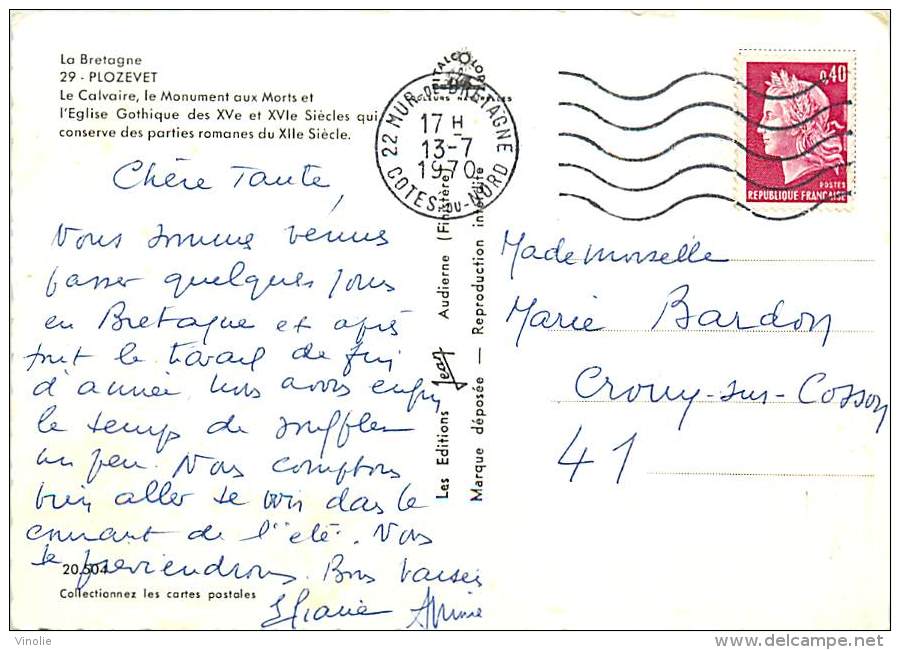 La Bretagne
29 - PLOZEVET
Le Calvaire, le Monument aux Morts et
l'Eglise Gothique des XVe et XVIe Siècles qui
conserve des parties romanes du XIIe Siècle.
22 MUR-DE-BRETAGNE
17 H
13-7
1970
COTES-DU-NORD
0,40
POSTES
REPUBLIQUE FRANÇAISE
Chère Tante,
Nous sommes venus
passer quelques jours
en Bretagne et après
tout le travail de fin
d'année nous avons enfin
le temps de souffler
un peu. Nous comptons
bien aller te voir dans le
courant de l'été. Nous
te previendrons. Bons baisers
Les Editions Jean Audierne (Finistère)
Marque déposée — Reproduction interdite
Mademoiselle
Marie Bardon
Crouy-sur-Cosson
41
20.504
Collectionnez les cartes postales
Vinolie
delcampe.net